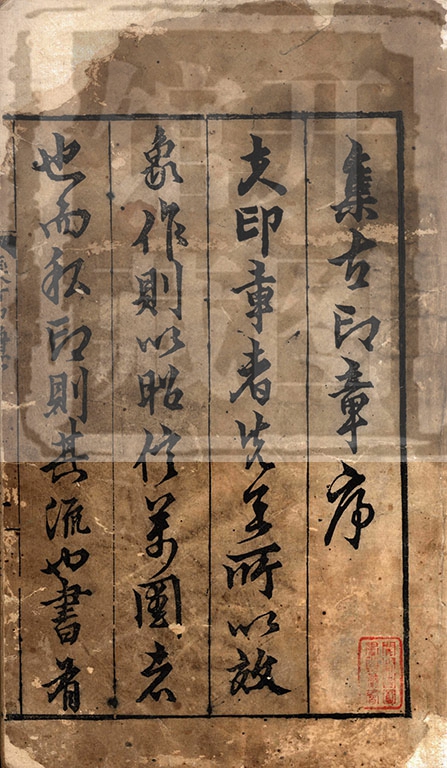 集古印章序
夫印章者先王所以效
象作則以昭信萬國者
也而私印則其流也書有